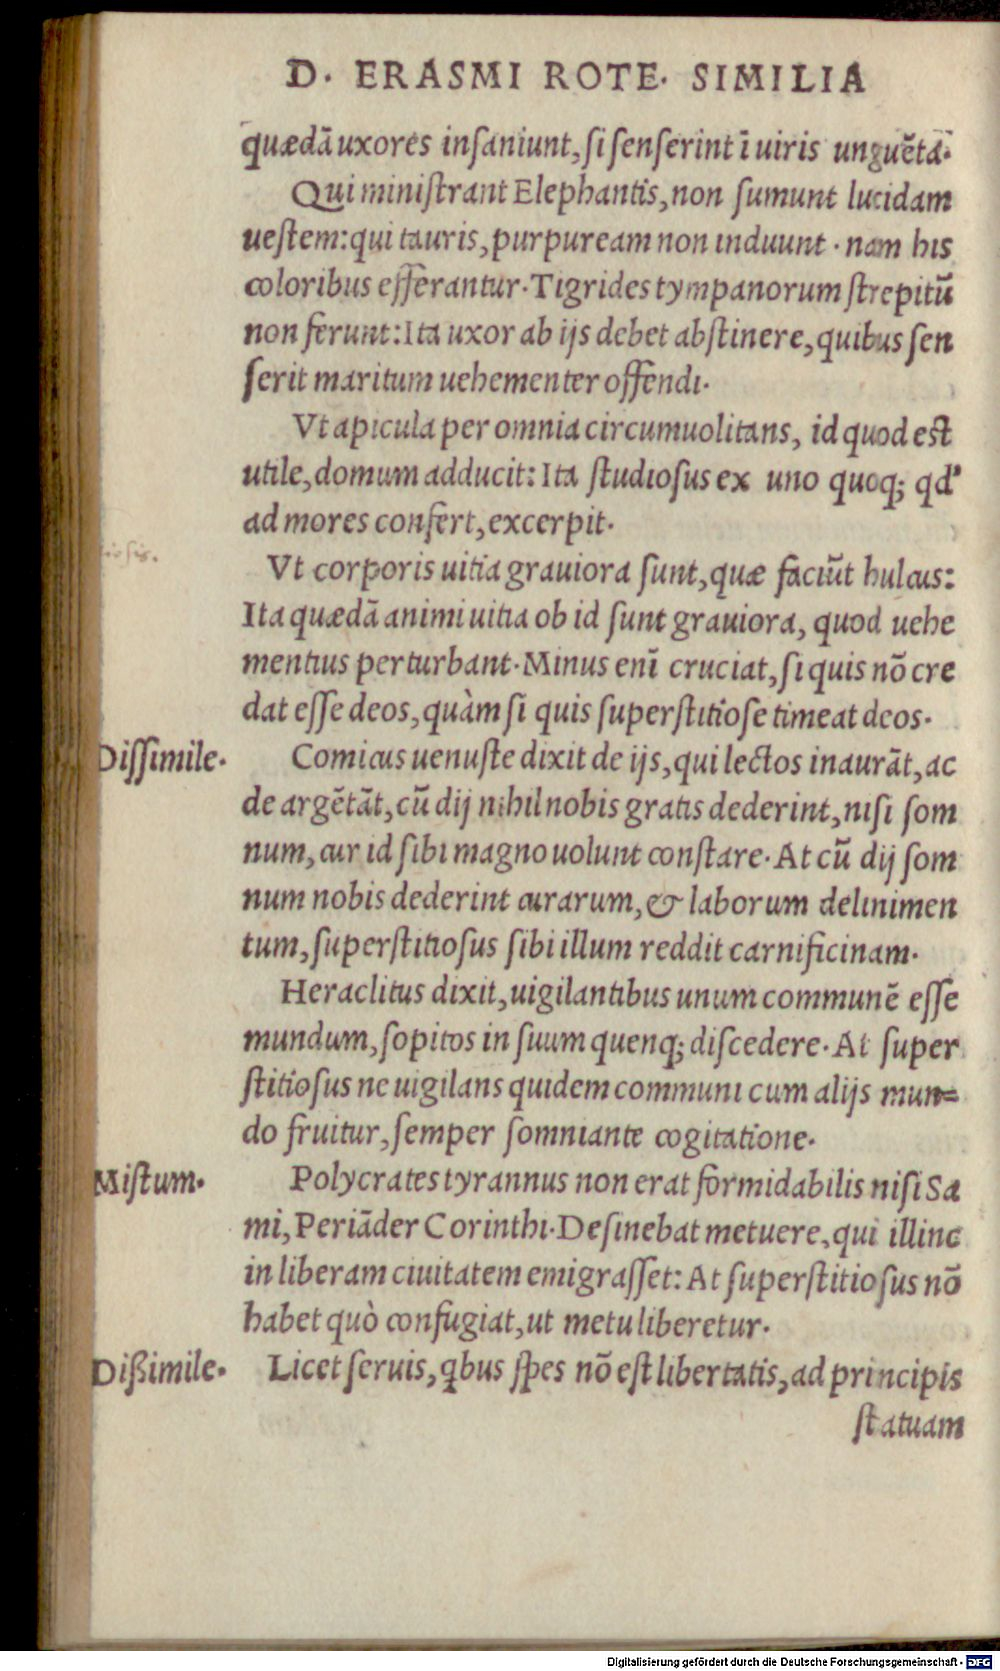 D. ERASMI ROTE. SIMILIA
quædā uxores insaniunt, si senserint ī uiris unguēta.
Qui ministrant Elephantis, non sumunt lucidam
uestem: qui tauris, purpuream non induunt. nam his
coloribus efferantur. Tigrides tympanorum strepitū
non ferunt: Ita uxor ab ijs debet abstinere, quibus sen
serit maritum uehementer offendi.
Vt apicula per omnia circumuolitans, id quod est
utile, domum adducit: Ita studiosus ex uno quoq; qd'
ad mores confert, excerpit.
Vt corporis uitia grauiora sunt, quæ faciūt hulcus:
Ita quædā animi uitia ob id sunt grauiora, quod uehe
mentius perturbant. Minus enī cruciat, si quis nō cre
dat esse deos, quàm si quis superstitiose timeat deos.
Dissimile. Comicus uenuste dixit de ijs, qui lectos inaurāt, ac
de argētāt, cū dij nihil nobis gratis dederint, nisi som
num, cur id sibi magno uolunt constare. At cū dij som
num nobis dederint curarum, & laborum delinimen
tum, superstitiosus sibi illum reddit carnificinam.
Heraclitus dixit, uigilantibus unum communē esse
mundum, sopitos in suum quenq; discedere. At super
stitiosus ne uigilans quidem communi cum alijs mun=
do fruitur, semper somniante cogitatione.
Mistum. Polycrates tyrannus non erat formidabilis nisi Sa
mi, Periāder Corinthi. Desinebat metuere, qui illinc
in liberam ciuitatem emigrasset: At superstitiosus nō
habet quò confugiat, ut metu liberetur.
Dißimile. Licet seruis, qbus spes nō est libertatis, ad principis
statuam
Digitalisierung gefördert durch die Deutsche Forschungsgemeinschaft - DFG